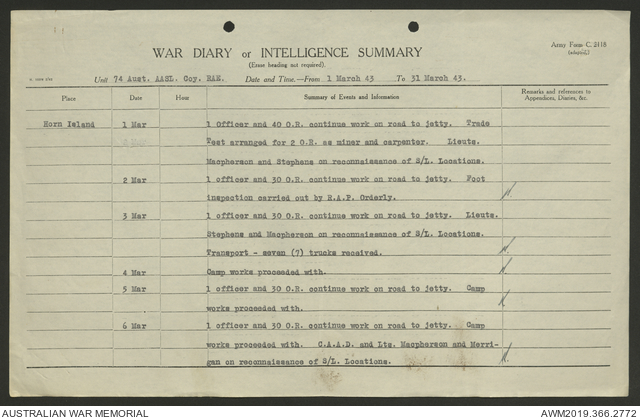 Army Form C. 2118
(adapted).
WAR DIARY or INTELLIGENCE SUMMARY
(Erase heading not required).
Unit 74 Aust. AASL. Coy. RAE. Date and Time.—From 1 March 43 To 31 March 43.
Place Date Hour Summary of Events and Information Remarks and references to Appendices, Diaries, &c.
Horn Island 1 Mar 1 Officer and 40 O.R. continue work on road to jetty. Trade
Test arranged for 2 O.R. as miner and carpenter. Lieuts.
Macpherson and Stephens on reconnaissance of S/L. Locations.
2 Mar 1 officer and 30 O.R. continue work on road to jetty. Foot
inspection carried out by R.A.P. Orderly.
3 Mar 1 officer and 30 O.R. continue work on road to jetty. Lieuts.
Stephens and Macpherson on reconnaissance of S/L Locations.
Transport - seven (7) trucks received.
4 Mar Camp works proceeded with.
5 Mar 1 officer and 30 O.R. continue work on road to jetty. Camp
works proceeded with.
6 Mar 1 officer and 30 O.R. continue work on road to jetty. Camp
works proceeded with. C.A.A.D. and Lts. Macpherson and Merri-
gan on reconnaissance of S/L. Locations.
AUSTRALIAN WAR MEMORIAL AWM2019.366.2772